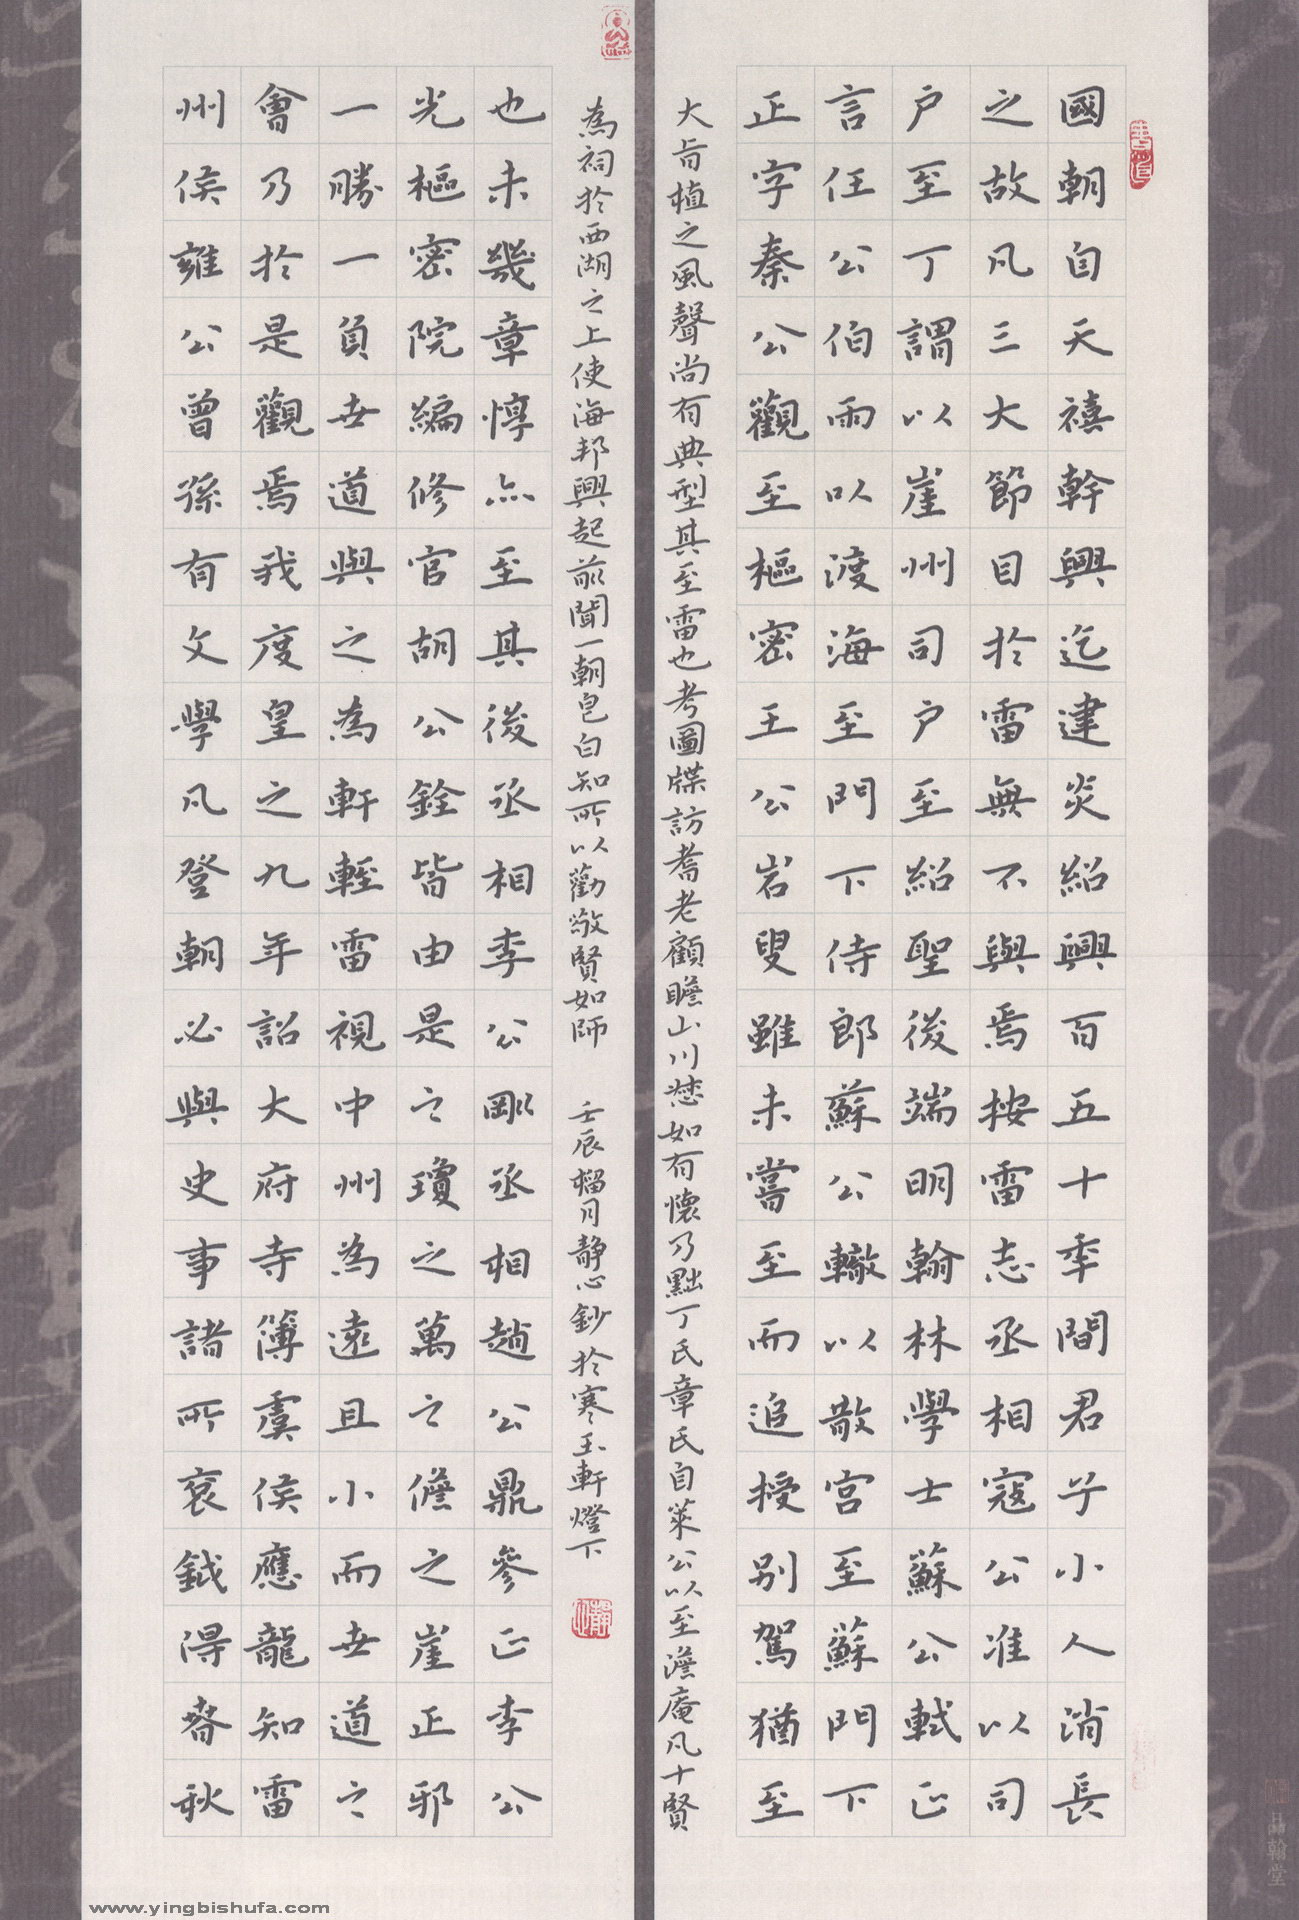 國朝自天禧幹興迄建炎紹興百五十季間君子小人消長
之故凡三大節目於雷無不與焉按雷志丞相寇公准以司
户至丁謂以崖州司户至紹聖後端明翰林學士蘇公軾正
言任公伯雨以渡海至門下侍郎蘇公轍以散宮至蘇門下
正字秦公觀至樞密王公岩叟雖未嘗至而追授別駕猶至
大旨植之風聲尚有典型其至雷也考圖牒訪耆老顧瞻山川如有懷乃黜丁氏章氏自萊公以至澹庵凡十賢
為祠於西湖之上使海邦興起前聞一朝皂白知所以勸敬賢如師 壬辰榴月靜心鈔於寒玉軒燈下
也未幾章惇亦至其後丞相李公剛丞相趙公鼎參正李公
光樞密院編修官胡公銓皆由是之瓊之萬之儋之崖正邪
一勝一負世道與之為軒輊雷視中州為遠且小而世道之
會乃於是觀焉我度皇之九年詔大府寺簿虞侯應龍知雷
州侯雍公曾孫有文學凡登朝必與史事諸所袞鉞得春秋
品翰堂
www.yingbishufa.com